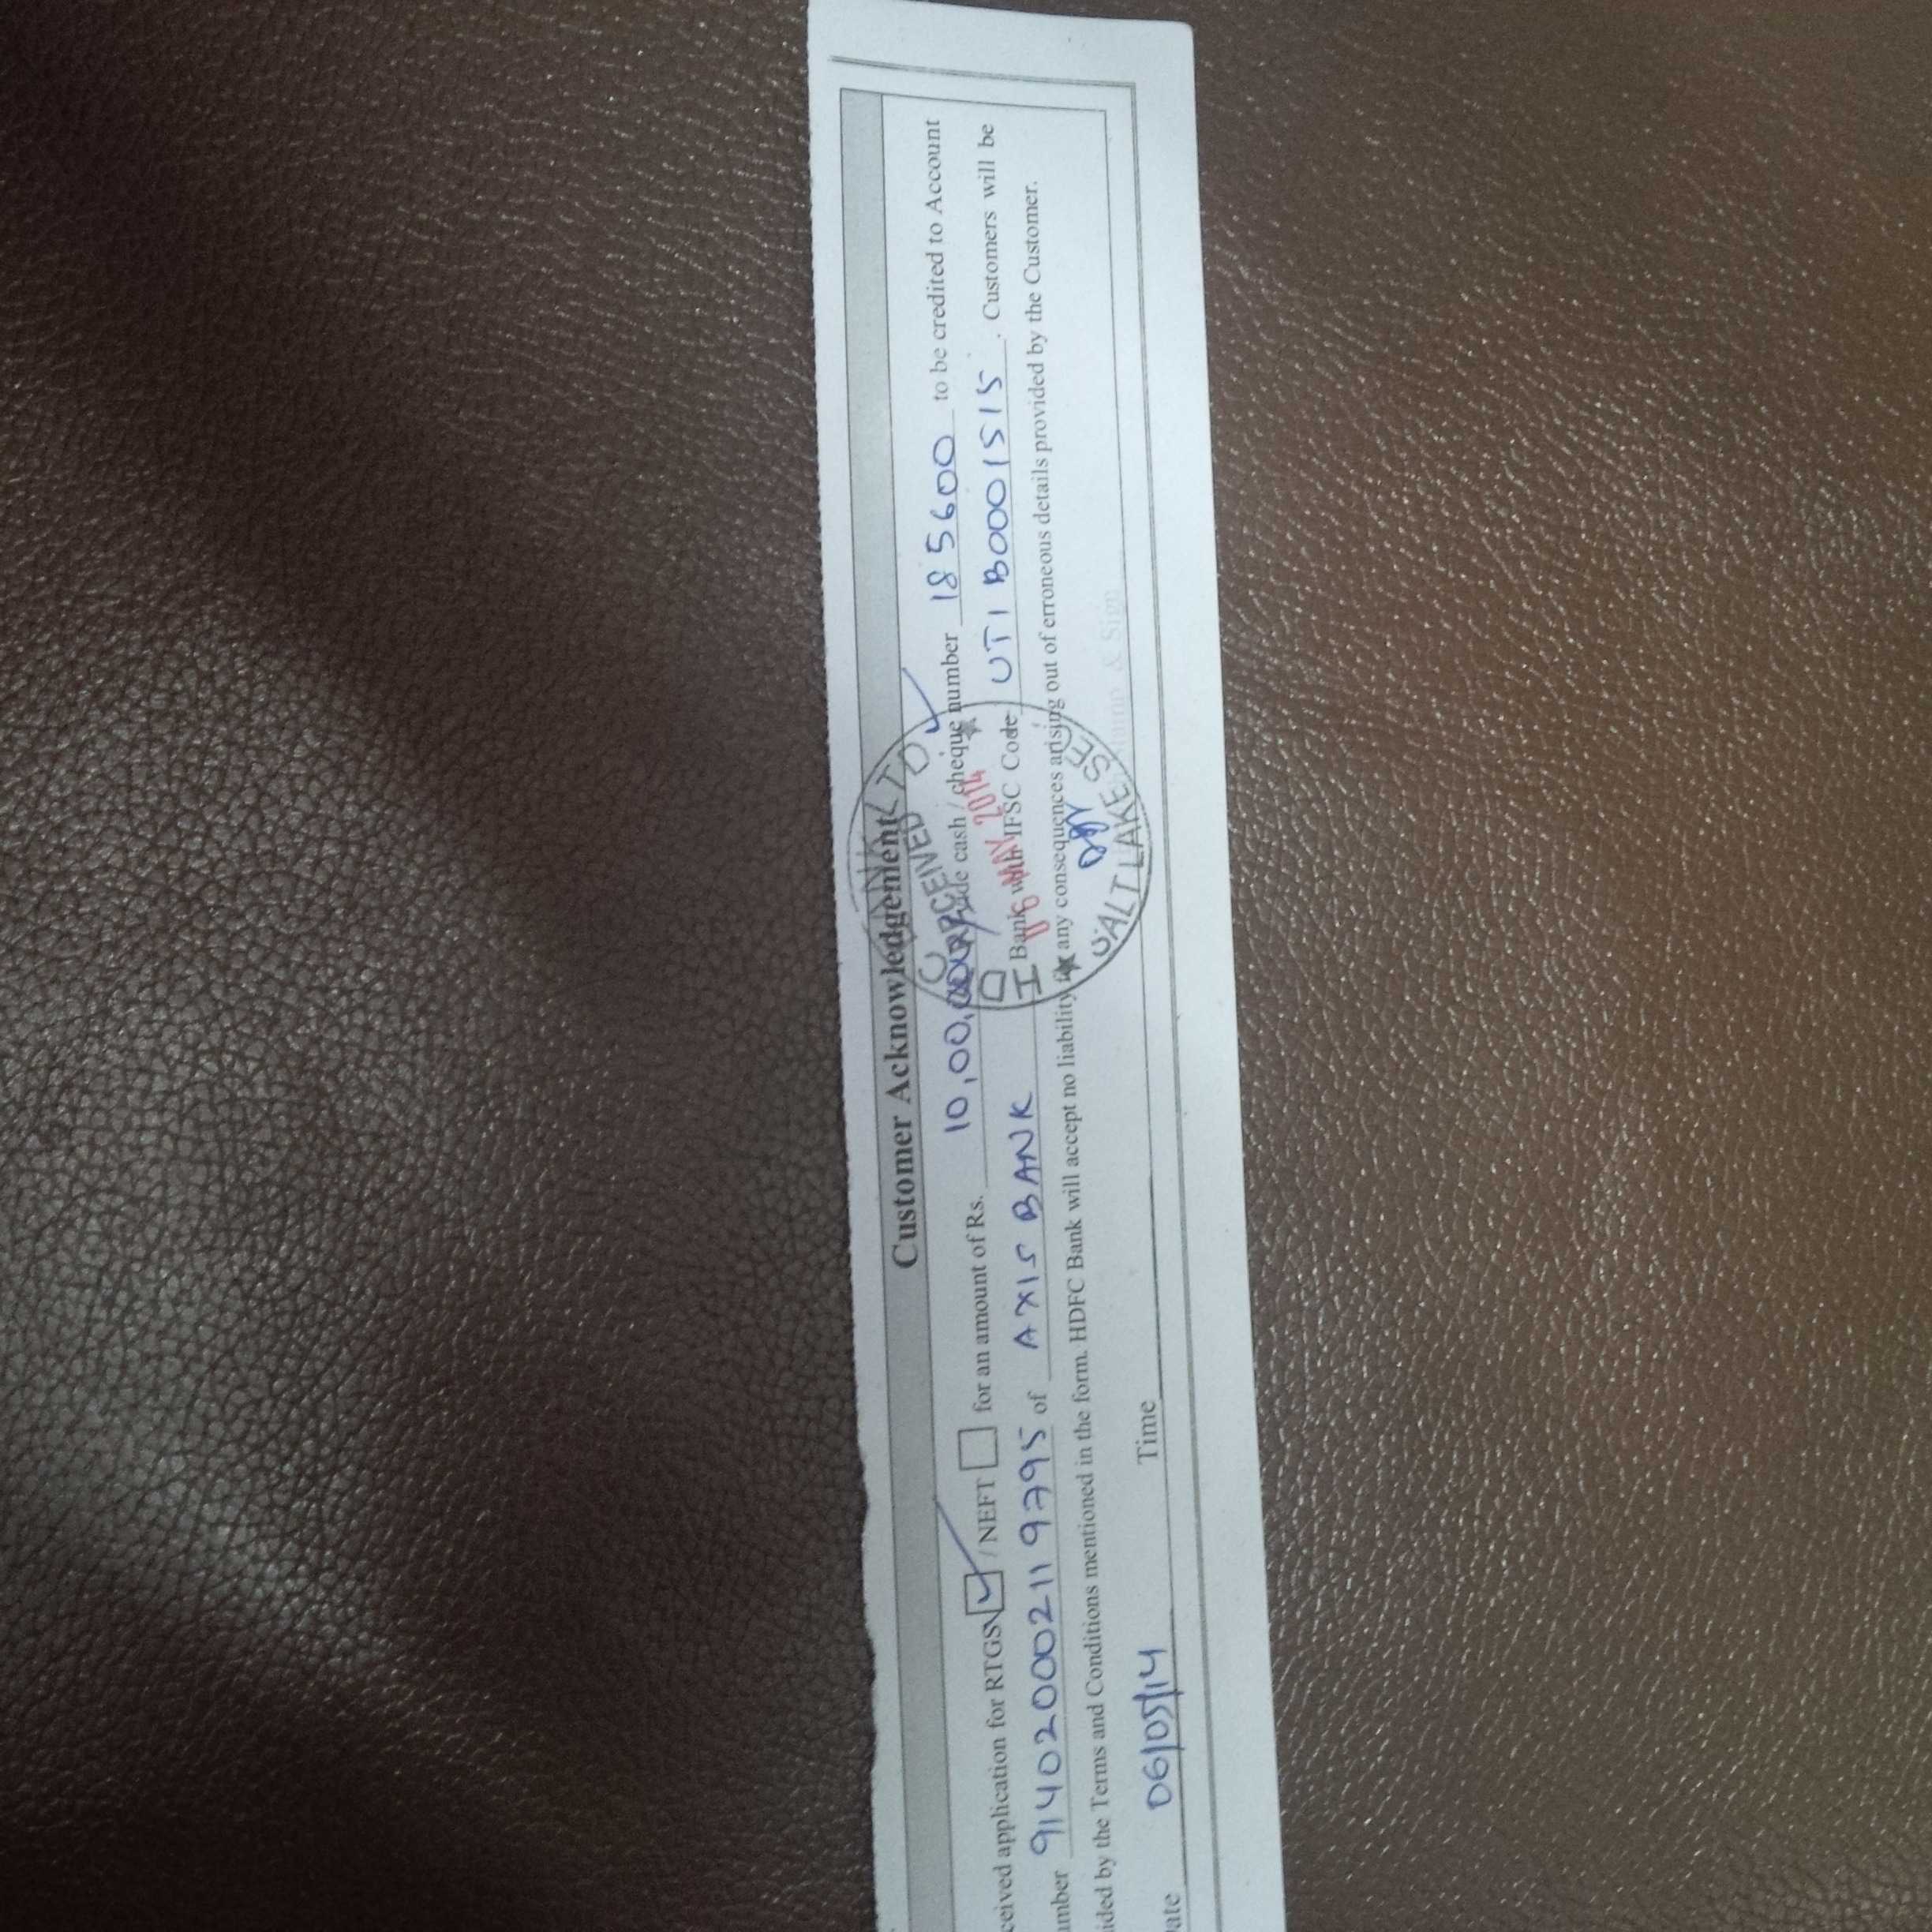 Customer Acknowledgement
ceived application for RTGS / NEFT for an amount of Rs. 10,00, cash / cheque number 185600 to be credited to Account
umber 914020002119795 of AXIS BANK Bank with IFSC Code UTIB0001515 . Customers will be
ided by the Terms and Conditions mentioned in the form. HDFC Bank will accept no liability for any consequences arising out of erroneous details provided by the Customer.
ate 06/05/14 Time & Sign
RECEIVED
06 MAY 2014
SALT LAKE SEC